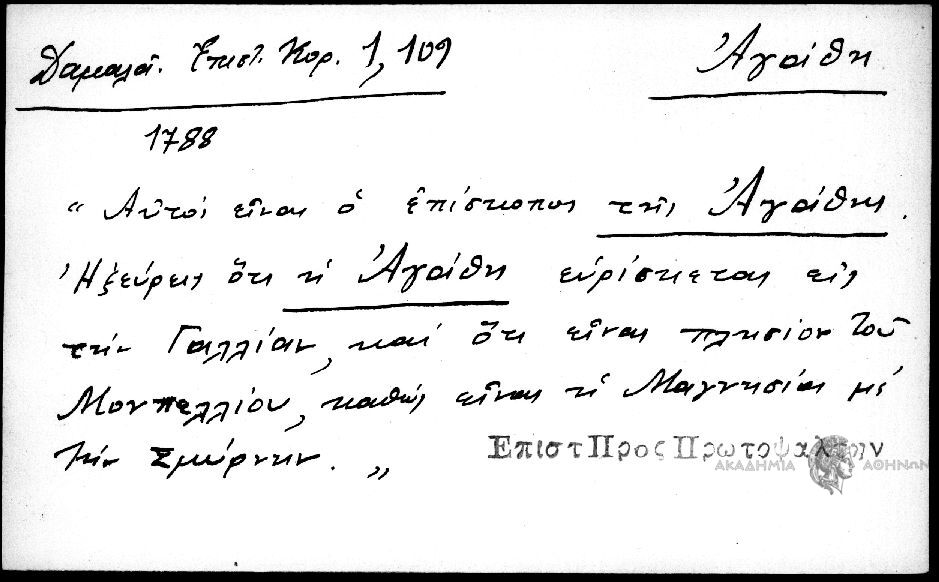 Δαμαλᾶ. Ἐπιστ. Κορ. 1, 109
Ἀγάθη
1788
“Αὐτός εἶναι ὁ ἐπίσκοπος τῆς Ἀγάθης.
Ἠξεύρεις ὅτι ἡ Ἀγάθη εὑρίσκεται εἰς
τήν Γαλλίαν, καί ὅτι εἶναι πλησίον τοῦ
Μονπελλίου, καθώς εἶναι ἡ Μαγνησία μέ
τήν Σμύρνην.„
Επιστ Προς Πρωτοψαλτην
ΑΚΑΔΗΜΙΑ ΑΘΗΝΩΝ